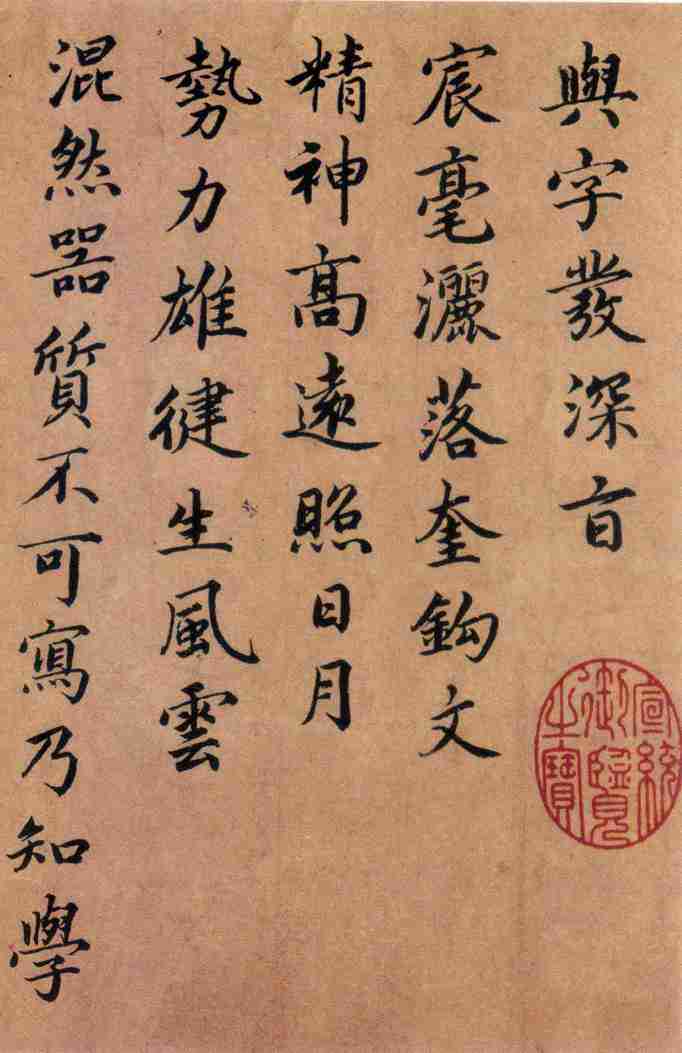 與字發深旨
宸毫灑落奎鈎文
精神髙遠照日月
勢力雄徤生風雲
混然器質不可寫乃知學
宣統御覽之寶